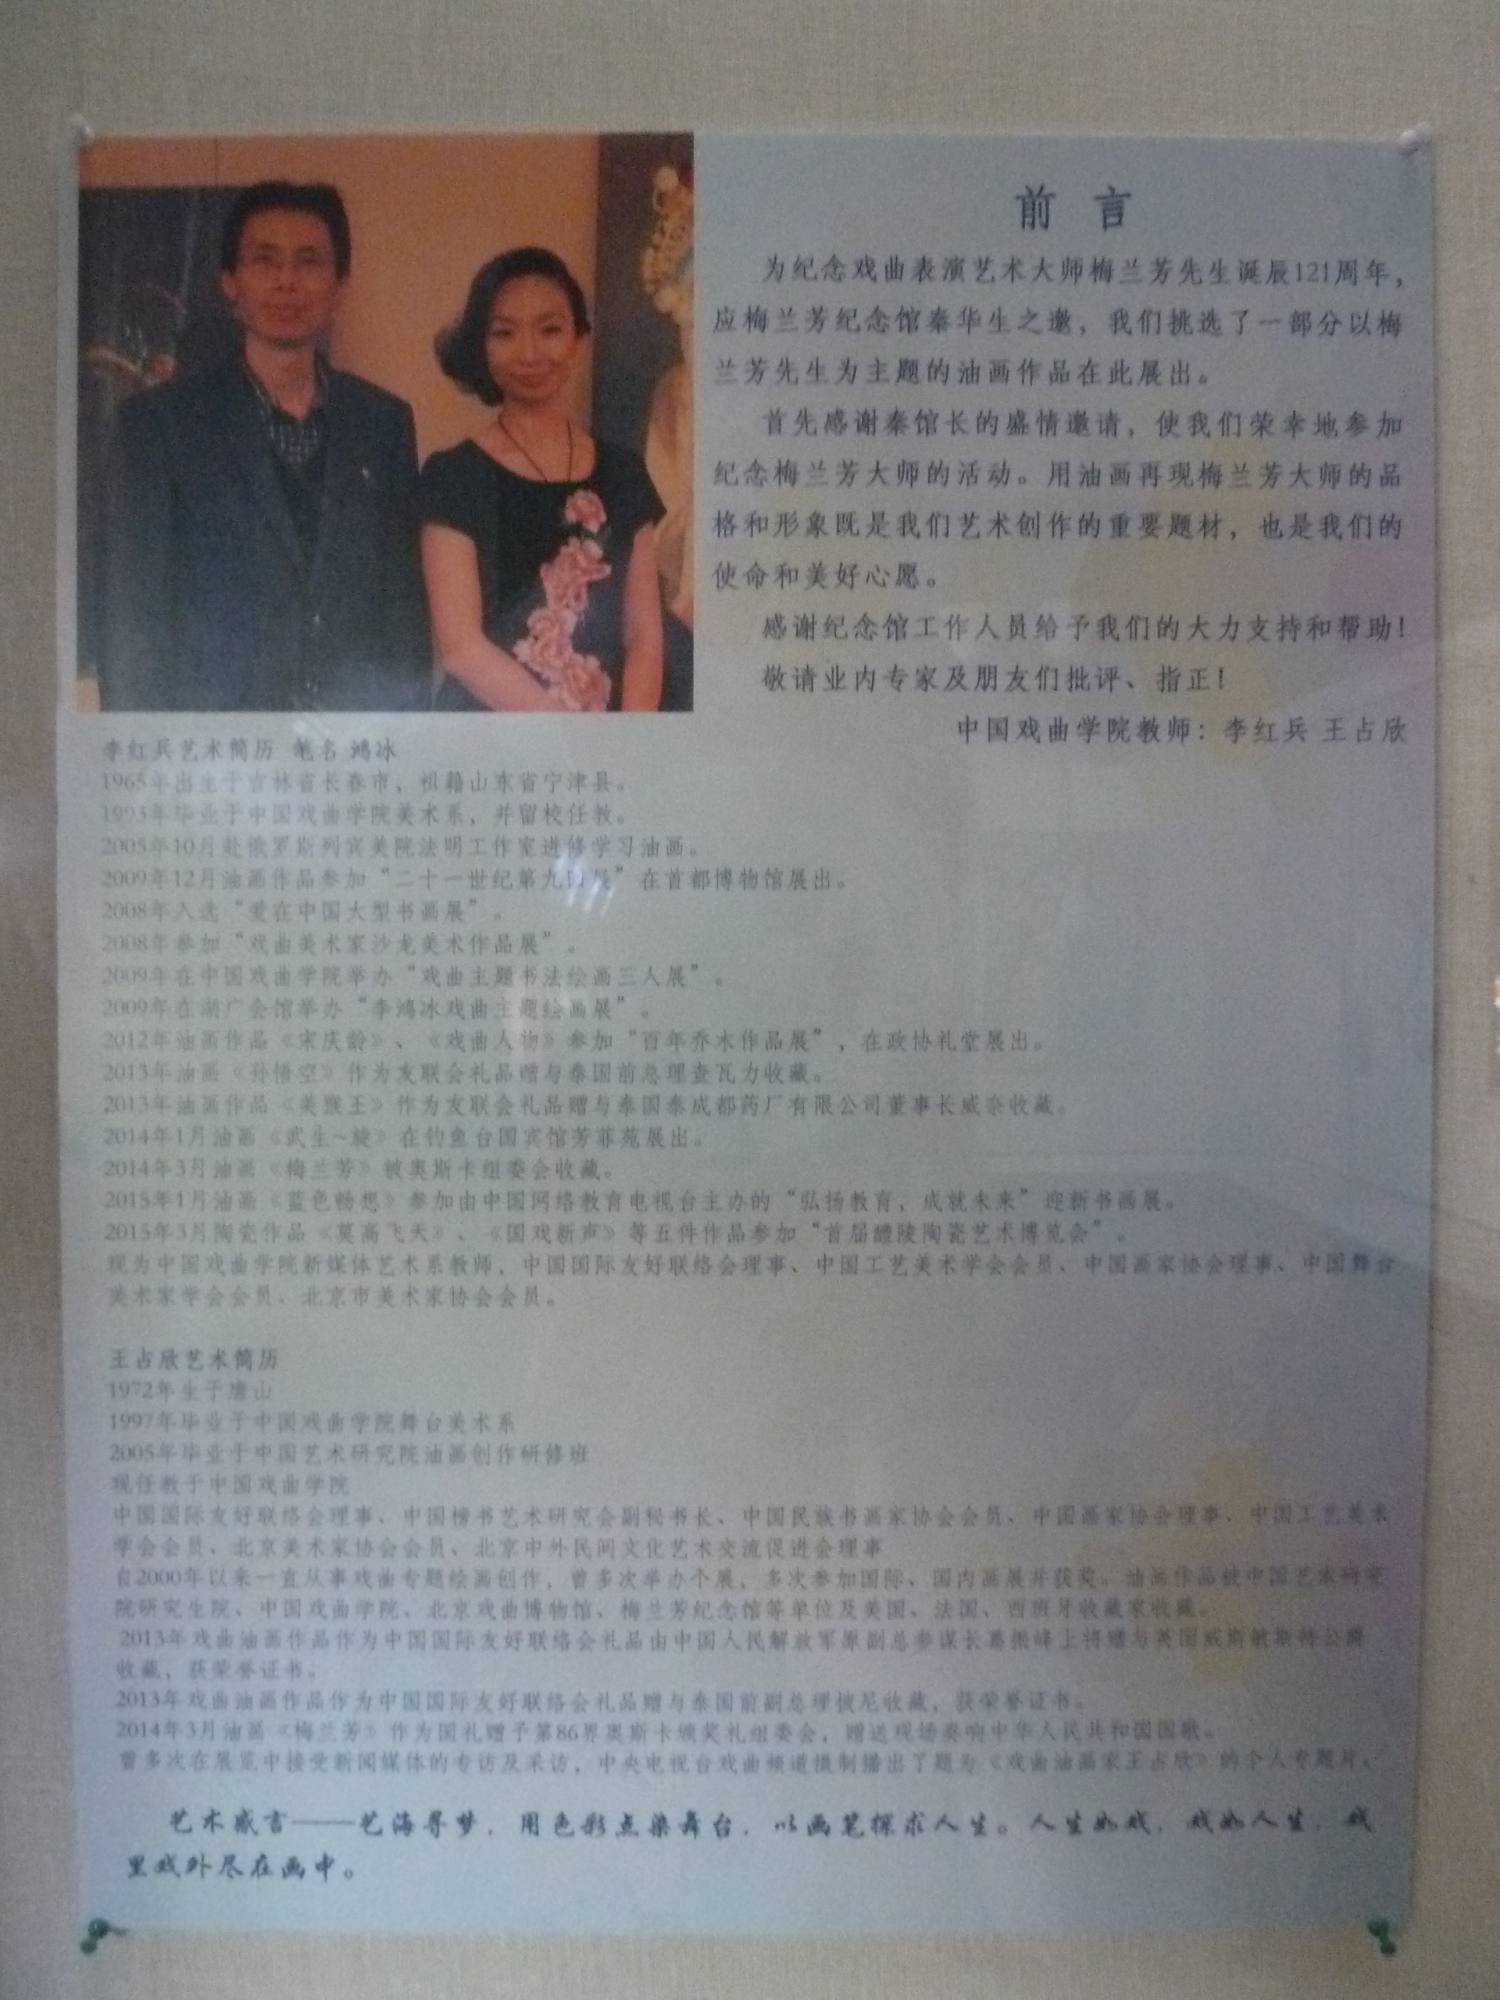 前 言
为纪念戏曲表演艺术大师梅兰芳先生诞辰121周年，
应梅兰芳纪念馆秦华生之邀，我们挑选了一部分以梅
兰芳先生为主题的油画作品在此展出。
首先感谢秦馆长的盛情邀请，使我们荣幸地参加
纪念梅兰芳大师的活动。用油画再现梅兰芳大师的品
格和形象既是我们艺术创作的重要题材，也是我们的
使命和美好心愿。
感谢纪念馆工作人员给予我们的大力支持和帮助！
敬请业内专家及朋友们批评、指正！
中国戏曲学院教师：李红兵 王占欣
李红兵艺术简历 笔名 鸿冰
1965年出生于吉林省长春市、祖籍山东省宁津县。
1993年毕业于中国戏曲学院美术系，并留校任教。
2005年10月赴俄罗斯列宾美院法明工作室进修学习油画。
2009年12月油画作品参加“二十一世纪第九回展”在首都博物馆展出。
2008年入选“爱在中国大型书画展”。
2008年参加“戏曲美术家沙龙美术作品展”。
2009年在中国戏曲学院举办“戏曲主题书法绘画三人展”。
2009年在湖广会馆举办“李鸿冰戏曲主题绘画展”。
2012年油画作品《宋庆龄》、《戏曲人物》参加“百年乔木作品展”，在政协礼堂展出。
2013年油画《孙悟空》作为友联会礼品赠与泰国前总理查瓦力收藏。
2013年油画作品《美猴王》作为友联会礼品赠与泰国泰成都药厂有限公司董事长威奈收藏。
2014年1月油画《武生~旋》在钓鱼台国宾馆芳菲苑展出。
2014年3月油画《梅兰芳》被奥斯卡组委会收藏。
2015年1月油画《蓝色畅想》参加由中国网络教育电视台主办的“弘扬教育，成就未来”迎新书画展。
2015年3月陶瓷作品《莫高飞天》、《国戏新声》等五件作品参加“首届醴陵陶瓷艺术博览会”。
现为中国戏曲学院新媒体艺术系教师，中国国际友好联络会理事、中国工艺美术学会会员、中国画家协会理事、中国舞台
美术家学会会员、北京市美术家协会会员。
王占欣艺术简历
1972年生于唐山
1997年毕业于中国戏曲学院舞台美术系
2005年毕业于中国艺术研究院油画创作研修班
现任教于中国戏曲学院
中国国际友好联络会理事、中国榜书艺术研究会副秘书长、中国民族书画家协会会员、中国画家协会理事、中国工艺美术
学会会员、北京美术家协会会员、北京中外民间文化艺术交流促进会理事
自2000年以来一直从事戏曲专题绘画创作，曾多次举办个展，多次参加国际、国内画展并获奖。油画作品被中国艺术研究
院研究生院、中国戏曲学院、北京戏曲博物馆、梅兰芳纪念馆等单位及美国、法国、西班牙收藏家收藏。
2013年戏曲油画作品作为中国国际友好联络会礼品由中国人民解放军原副总参谋长葛振峰上将赠与英国威斯敏斯特公爵
收藏，获荣誉证书。
2013年戏曲油画作品作为中国国际友好联络会礼品赠与泰国前副总理披尼收藏，获荣誉证书。
2014年3月油画《梅兰芳》作为国礼赠予第86界奥斯卡颁奖礼组委会，赠送现场奏响中华人民共和国国歌。
曾多次在展览中接受新闻媒体的专访及采访，中央电视台戏曲频道摄制播出了题为《戏曲油画家王占欣》的个人专题片。
艺术感言——艺海寻梦，用色彩点染舞台，以画笔探求人生。人生如戏，戏如人生，戏
里戏外尽在画中。